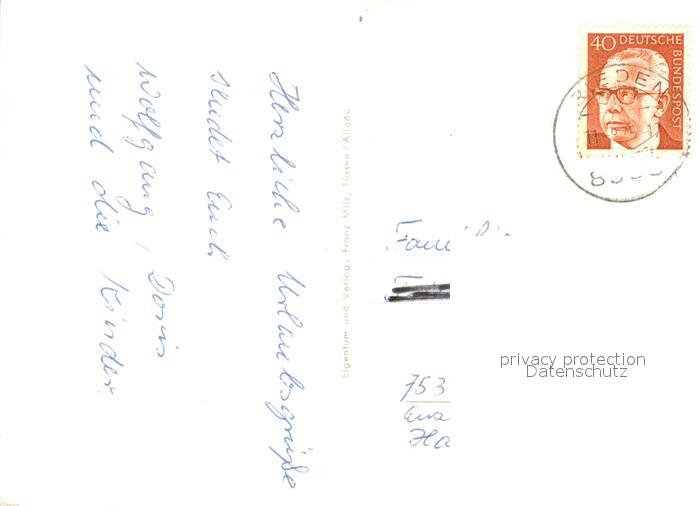 Herzliche Urlaubsgrüße
sendet Euch
Wolfgang, Doris
und die Kinder.
Eigentum und Verlag: Franz Milz, Füssen/Allgäu
40 DEUTSCHE
BUNDESPOST
RIEDEN
Fam
753
Ha
privacy protection
Datenschutz